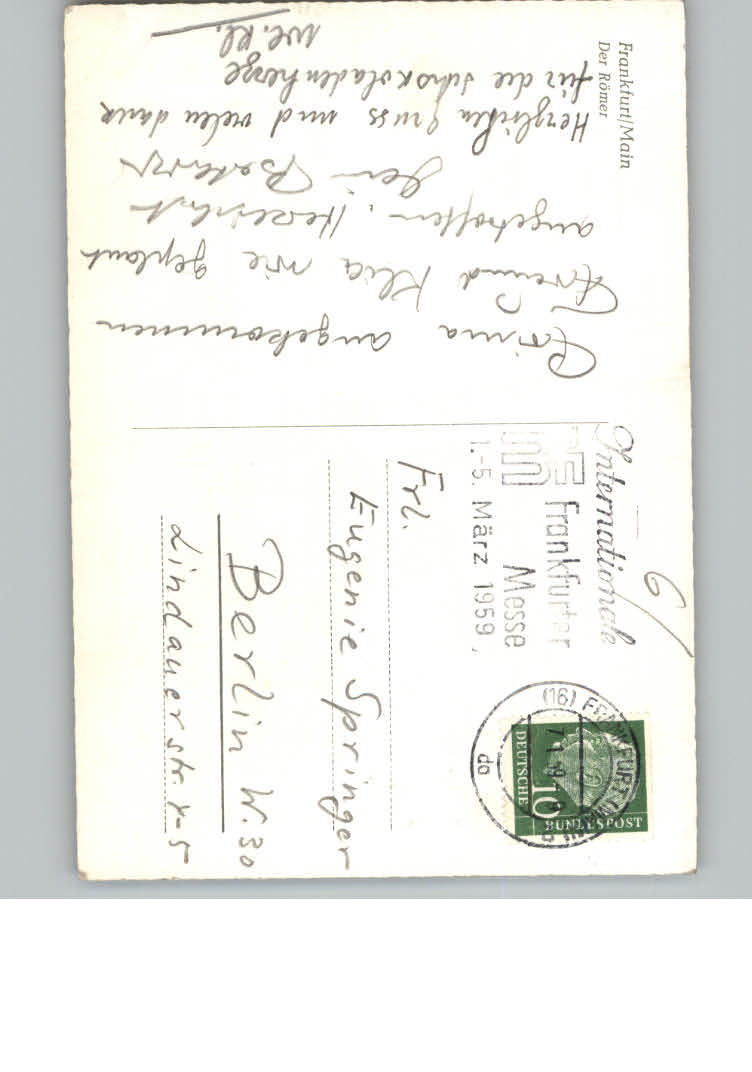 Frankfurt/Main
Der Römer
Prima angekommen
Freund Klia wie geplant
angetroffen. Herzlichst
Herzlichen Gruss und vielen Dank
für die Schokoladenherze
We. Kl.
Internationale
Frankfurter
Messe
1.-5. März 1959
(16) FRANKFURT (MAIN)
7.1.
do
DEUTSCHE
BUNDESPOST
10
6
Frl.
Eugenie Springer
Berlin W. 30
Lindauerstr. 4-5